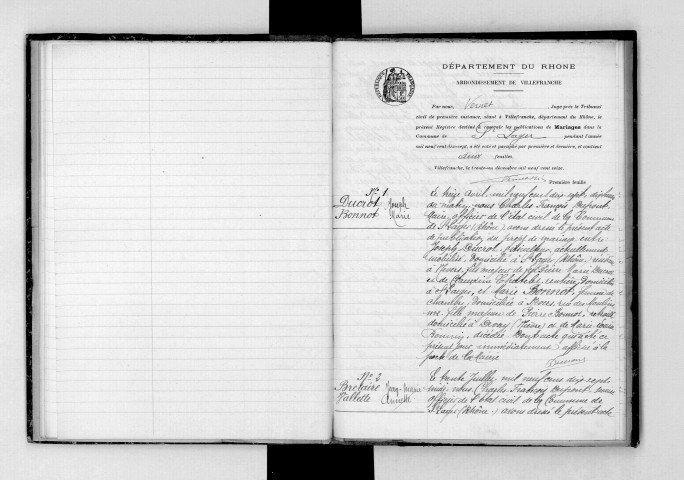 DÉPARTEMENT DU RHONE
ARRONDISSEMENT DE VILLEFRANCHE
Par nous, Vernet, Juge près le Tribunal
civil de première instance, séant à Villefranche, département du Rhône, le
présent Registre destiné à recevoir les publications de Mariages dans la
Commune de St Lager pendant l'année
mil neuf cent dix-sept, a été coté et paraphé par première et dernière, et contient
deux feuilles.
Villefranche, le trente-un décembre mil neuf cent seize.
Première feuille
No 1.
Ducrot Joseph
Bonnot Marie
Le treize avril mil neuf cent dix sept, dix heures
du matin, nous Charles François
Maire, officier de l'état civil de la Commune
de St Lager (Rhône) avons dressé le présent acte
de publication du projet de mariage entre
Joseph Ducrot, actuellement
mobilisé, domicilié à St Lager (Rhône)
à Nevers, fils majeur de Pierre Marie Ducrot
et de rentière, domiciliés
à St Lager, et Marie Bonnot, femme de
chambre, domiciliée à Nevers, rue
fille majeure de Pierre Bonnot,
domicilié à (Nièvre) et de Marie
décédée Dont acte qui a été ce
présent jour immédiatement affiché à la
porte de la Mairie
No 2
Brelaire Jean-Marie
Vallette Annette
Le trente Juillet mil neuf cent dix sept
midi, nous Charles François maire
officier de l'état civil de la Commune de
St Lager (Rhône) avons dressé le présent acte